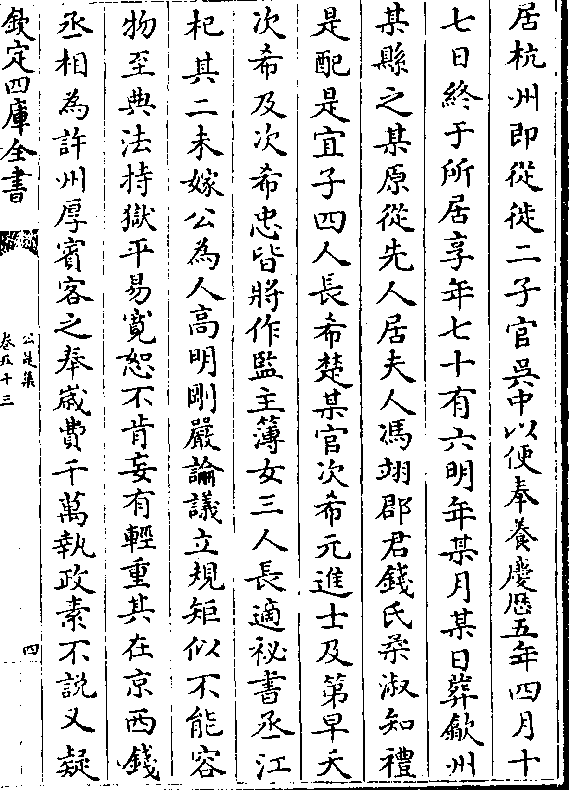 居杭州即從徙二子官吳中以便奉養慶厯五年四月十
七日終于所居享年七十有六明年某月某日葬歙州
某縣之某原從先人居夫人馮翊郡君錢氏柔淑知禮
是配是宜子四人長希楚某官次希元進士及第早夭
次希及次希忠皆將作監主簿女三人長適祕書丞江
杞其二未嫁公為人高明剛嚴論議立規矩似不能容
物至典法持獄平易寬恕不肯妄有輕重其在京西錢
丞相為許州厚賓客之奉歲費千萬執政素不説又疑
欽定四庫全書
公是集
卷五十三
四